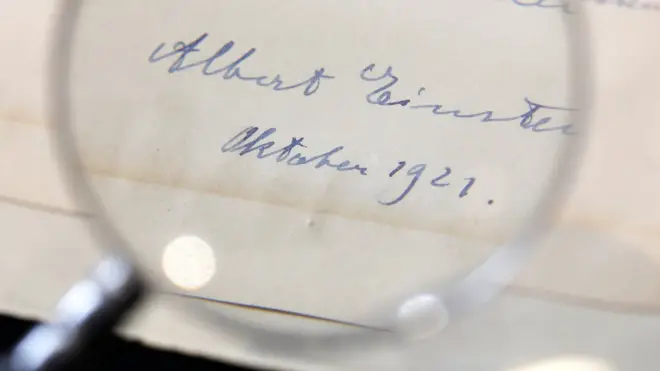 Albert Einstei
Oktober 1921.